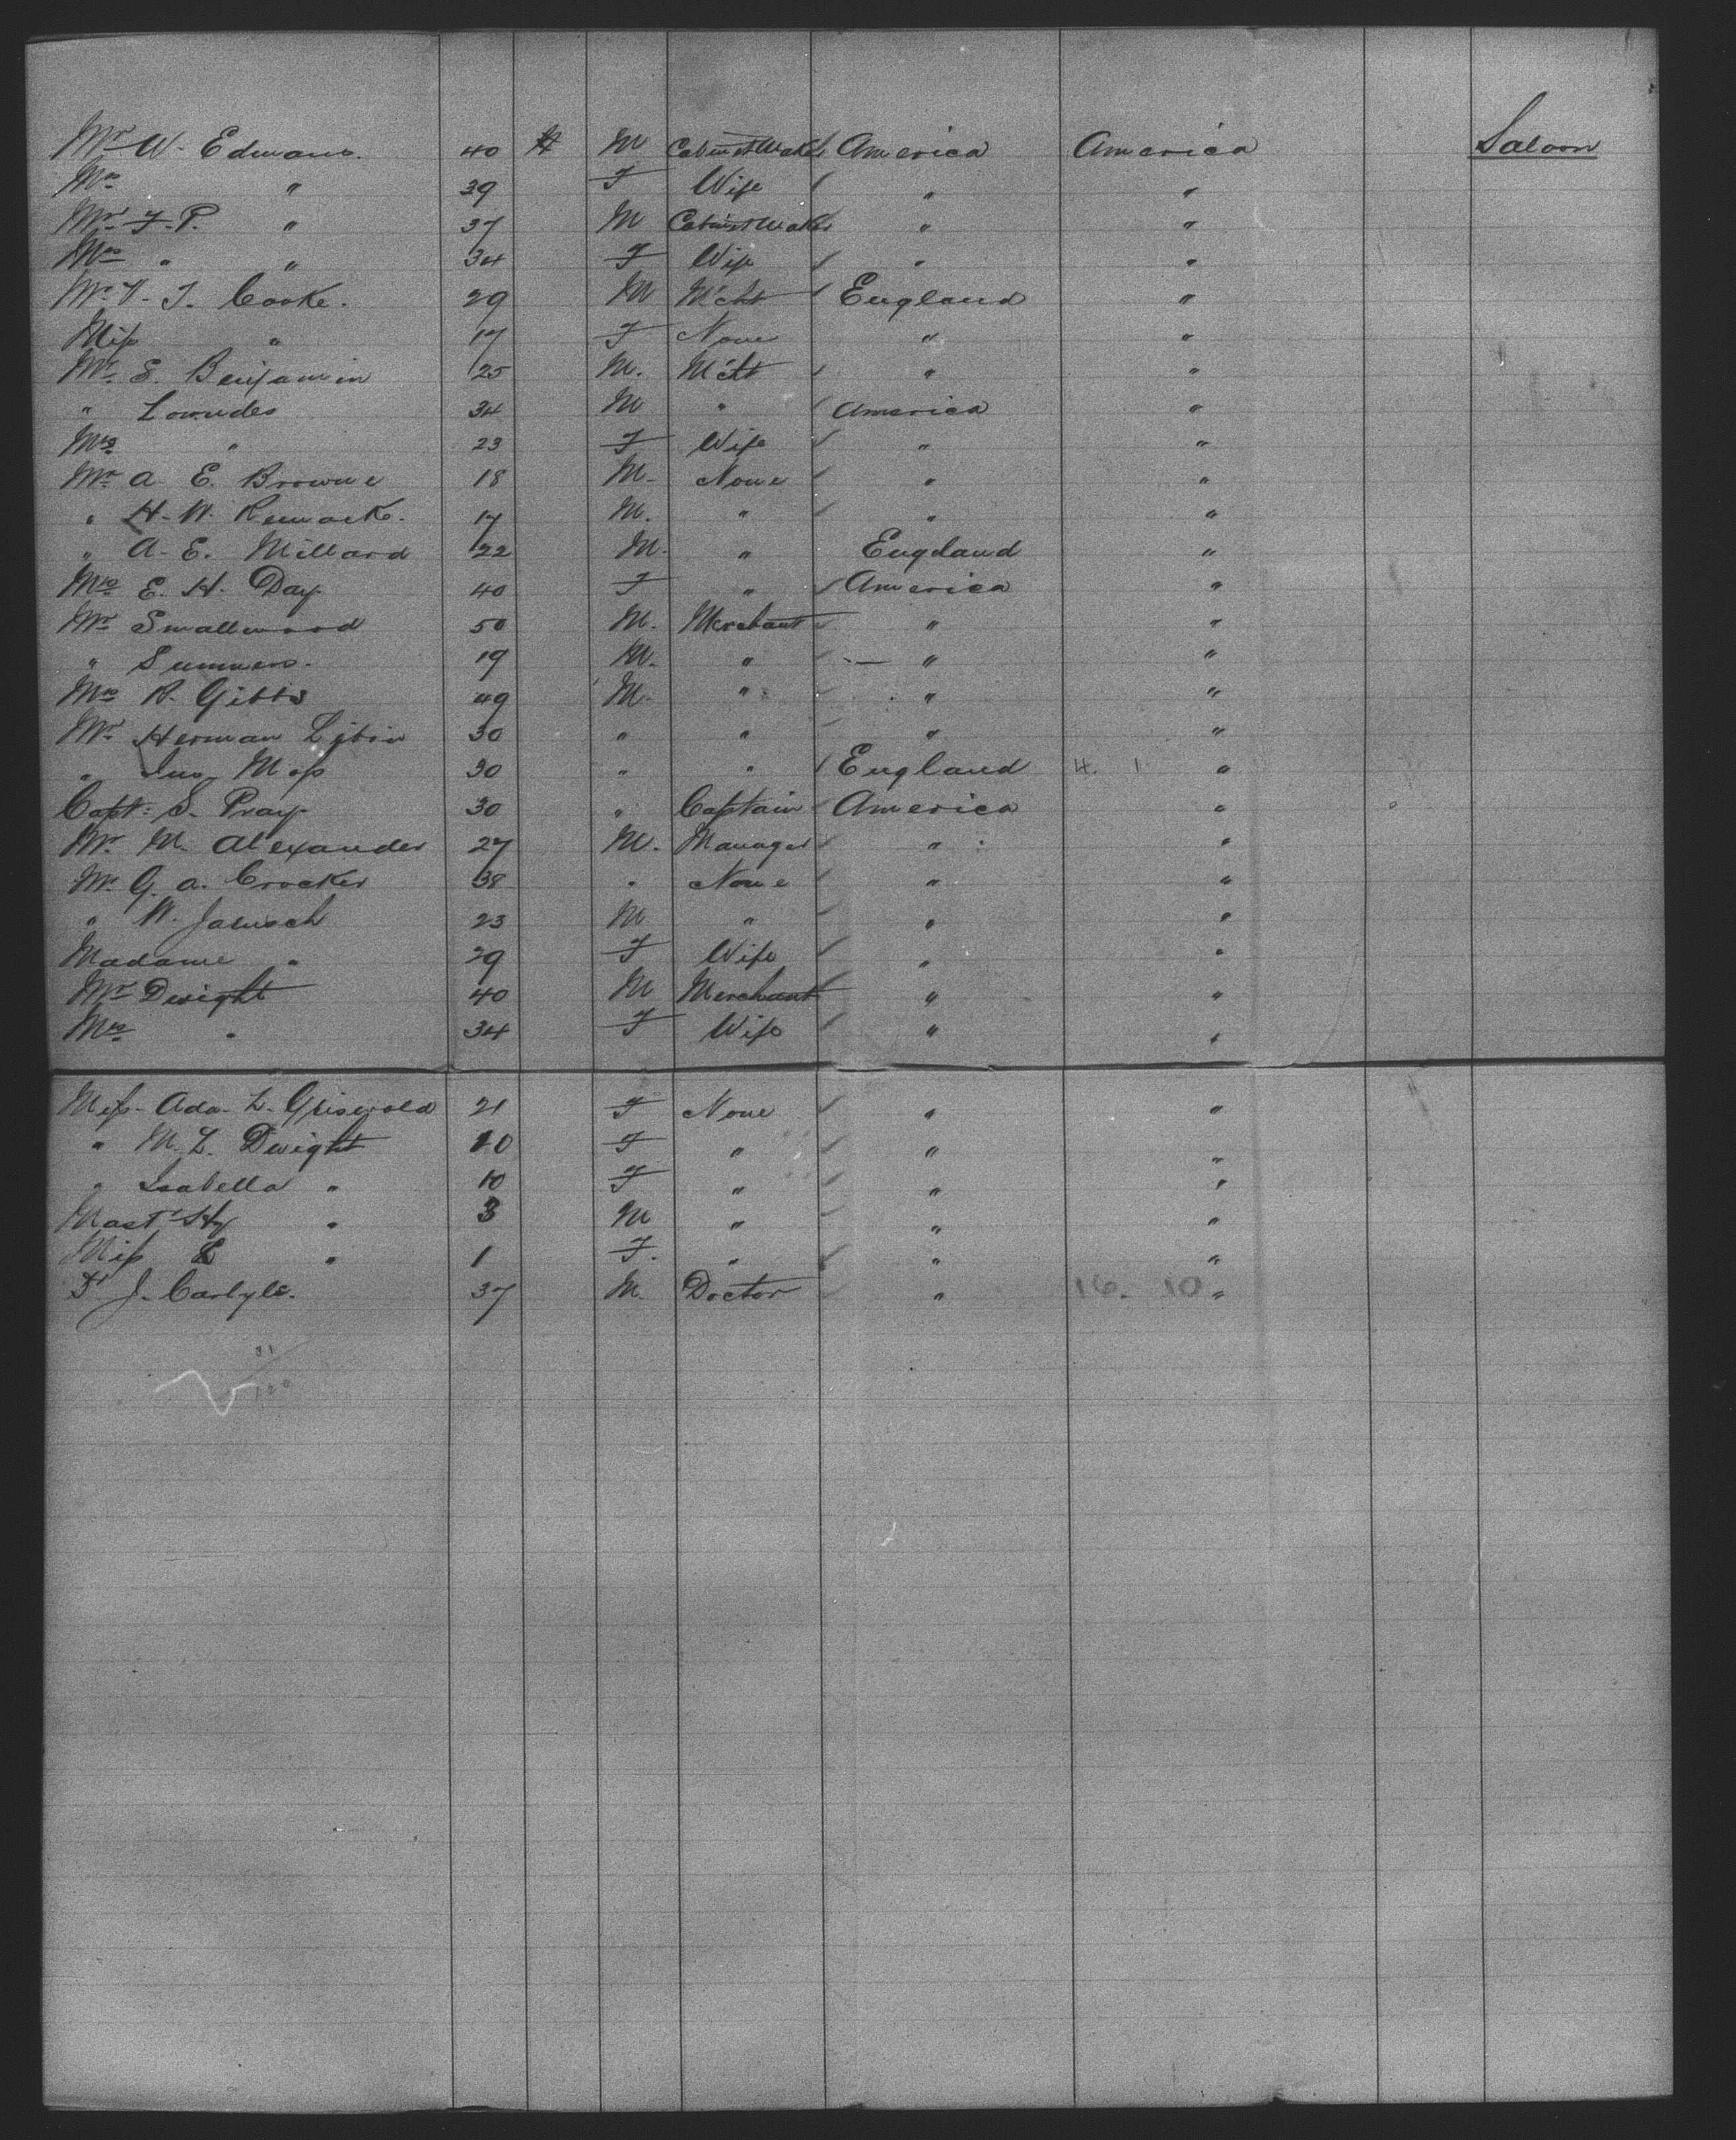 Mr W. Edwards. 40 M Cabinet Maker America America Saloon
Mrs " 39 F Wife " "
Mr F. P. " 37 M Cabinet Maker " "
Mrs " " 34 F Wife " "
Mr V. T. Cooke. 29 M M'cht England "
Miss " 17 F None " "
Mr S. Benjamin 25 M. M'cht " "
" Lowndes 34 M " America "
Mrs " 23 F Wife " "
Mr A. E. Browne 18 M. None " "
" H. W. Remack. 17 M. " " "
" A. E. Millard 22 M. " England "
Mrs E. H. Day 40 F " America "
Mr Smallwood 50 M. Merchant " "
" Summers. 19 M. " " "
Mrs R. Gibbs 49 M. " " "
Mr Herman 30 " " " "
" Jno. Moss 30 " " England 4. 1 "
Capt: S. Pray 30 " Captain America "
Mr. M. Alexander 27 M. Manager " "
Mr G. A. Crocker 38 " None " "
" W. 23 M " " "
Madame " 29 F Wife " "
Mr Dwight 40 M Merchant " "
Mrs " 34 F Wife " "
Miss Ada. L. Griswold 21 F None " "
" M. L. Dwight 10 F " " "
" Isabella " 10 F " " "
Mastr Hy " 3 M " " "
Miss L " 1 F. " " "
Dr J. Carlyle. 37 M. Doctor " 16. 10 "
31